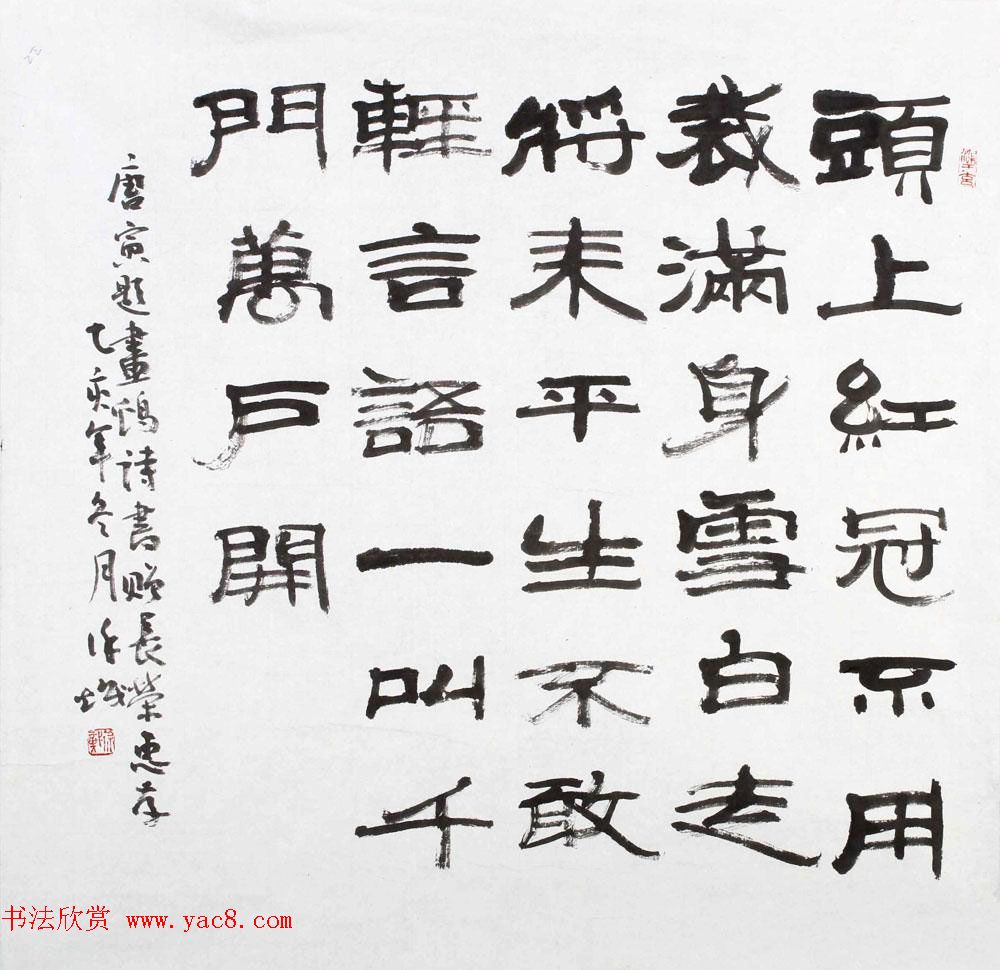 頭上紅冠不用
裁滿身雪白走
將來平生不敢
輕言語一叫千
門萬戶開
唐寅題畫鷄詩書贈長榮惠存
乙亥年冬月
书法欣赏 www.yac8.com